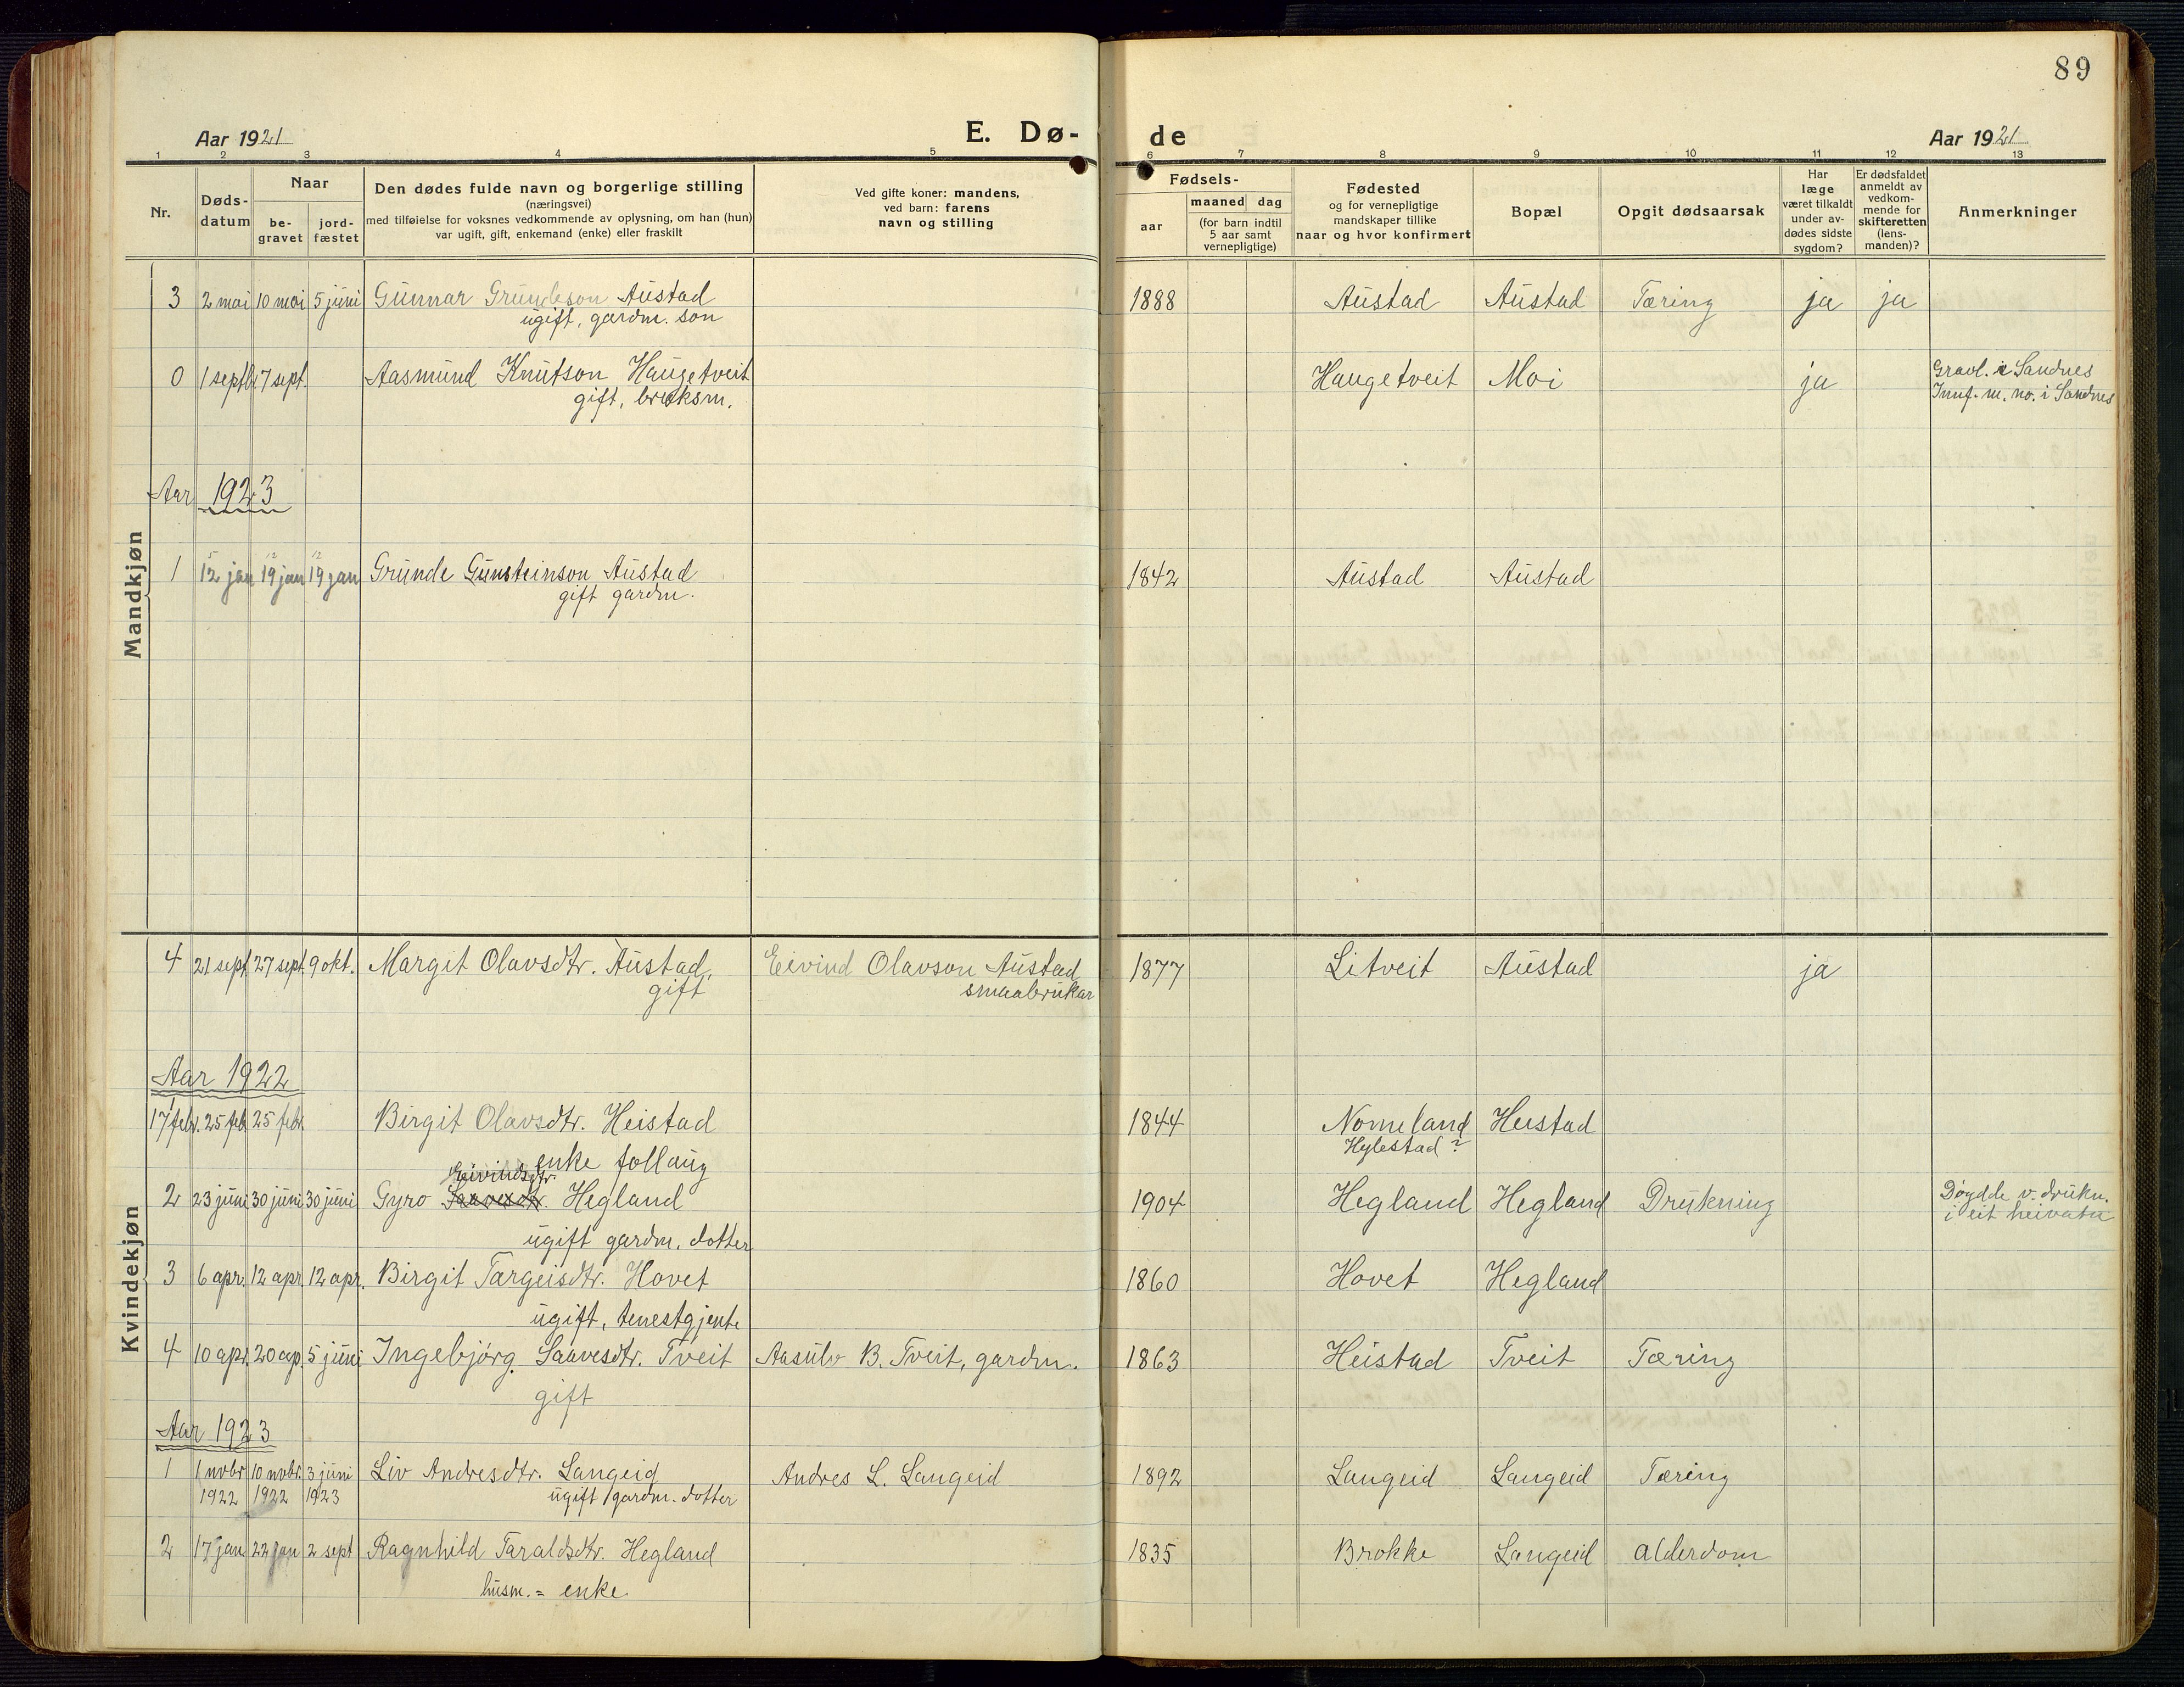 89
Aar 1921
E. Dø-
de
Aar 1921
1 2 3 4 5 6 7 8 9 10 11 12 13
Nr.
Døds-
datum
Naar
be-
gravet
jord-
fæstet
Den dødes fulde navn og borgerlige stilling
(næringsvei)
med tilføielse for voksnes vedkommende av oplysning, om han (hun)
var ugift, gift, enkemand (enke) eller fraskilt
Ved gifte koner: mandens,
ved barn: farens
navn og stilling
Fødsels-
aar
maaned dag
(for barn indtil
5 aar samt
vernepligtige)
Fødested
og for vernepligtige
mandskaper tillike
naar og hvor konfirmert
Bopæl
Opgit dødsaarsak
Har
læge
været tilkaldt
under av-
dødes sidste
sygdom?
Er dødsfaldet
anmeldt av
vedkom-
mende for
skifteretten
(lens-
manden)?
Anmerkninger
Mandkjøn
3 2 mai 10 mai 5 juni Gunnar Grundeson Austad 1888 Austad Austad Tæring ja ja
ugift, gardm. son
0 1 septb. 7 sept. Aasmund Knutson Haugetveit Haugetveit Moi ja Gravl. i Sandnes
gift, bruksm. Innf. m. no. i Sandnes
Aar 1923
1 12 jan 19 jan 19 jan Grunde Gunsteinson Austad 1842 Austad Austad
gift gardm.
Kvindekjøn
4 21 sept 27 sept. 9 okt. Margit Olavsdtr. Austad, Eivind Olavson Austad 1877 Litveit Austad ja
gift smaabrukar
Aar 1922
1 17 febr. 25 feb 25 febr. Birgit Olavsdtr. Heistad 1844 Nomeland Heistad
enke follaug Hylestad?
Eivindsdtr.
2 23 juni 30 juni 30 juni Gyro Saavesdtr. Hegland 1904 Hegland Hegland Drukning Døydde v. drukn.
ugift gardm. dotter i eit heivatn
3 6 apr. 12 apr 12 apr. Birgit Targeisdtr. Hovet 1860 Hovet Hegland
ugift, tenestgjente
4 10 apr. 20 ap. 5 juni Ingebjørg Saavesdtr. Tveit Aasulv B. Tveit, gardm. 1863 Heistad Tveit Tæring
gift
Aar 1923
1 1 novbr 10 novbr. 3 juni Liv Andresdtr. Langeid Andres L. Langeid 1892 Langeid Langeid Tæring
1922 1922 1923 ugift gardm. dotter
2 17 jan 22 jan 2 sept Ragnhild Taraldsdtr. Hegland 1835 Brokke Langeid alderdom
husm. = enke